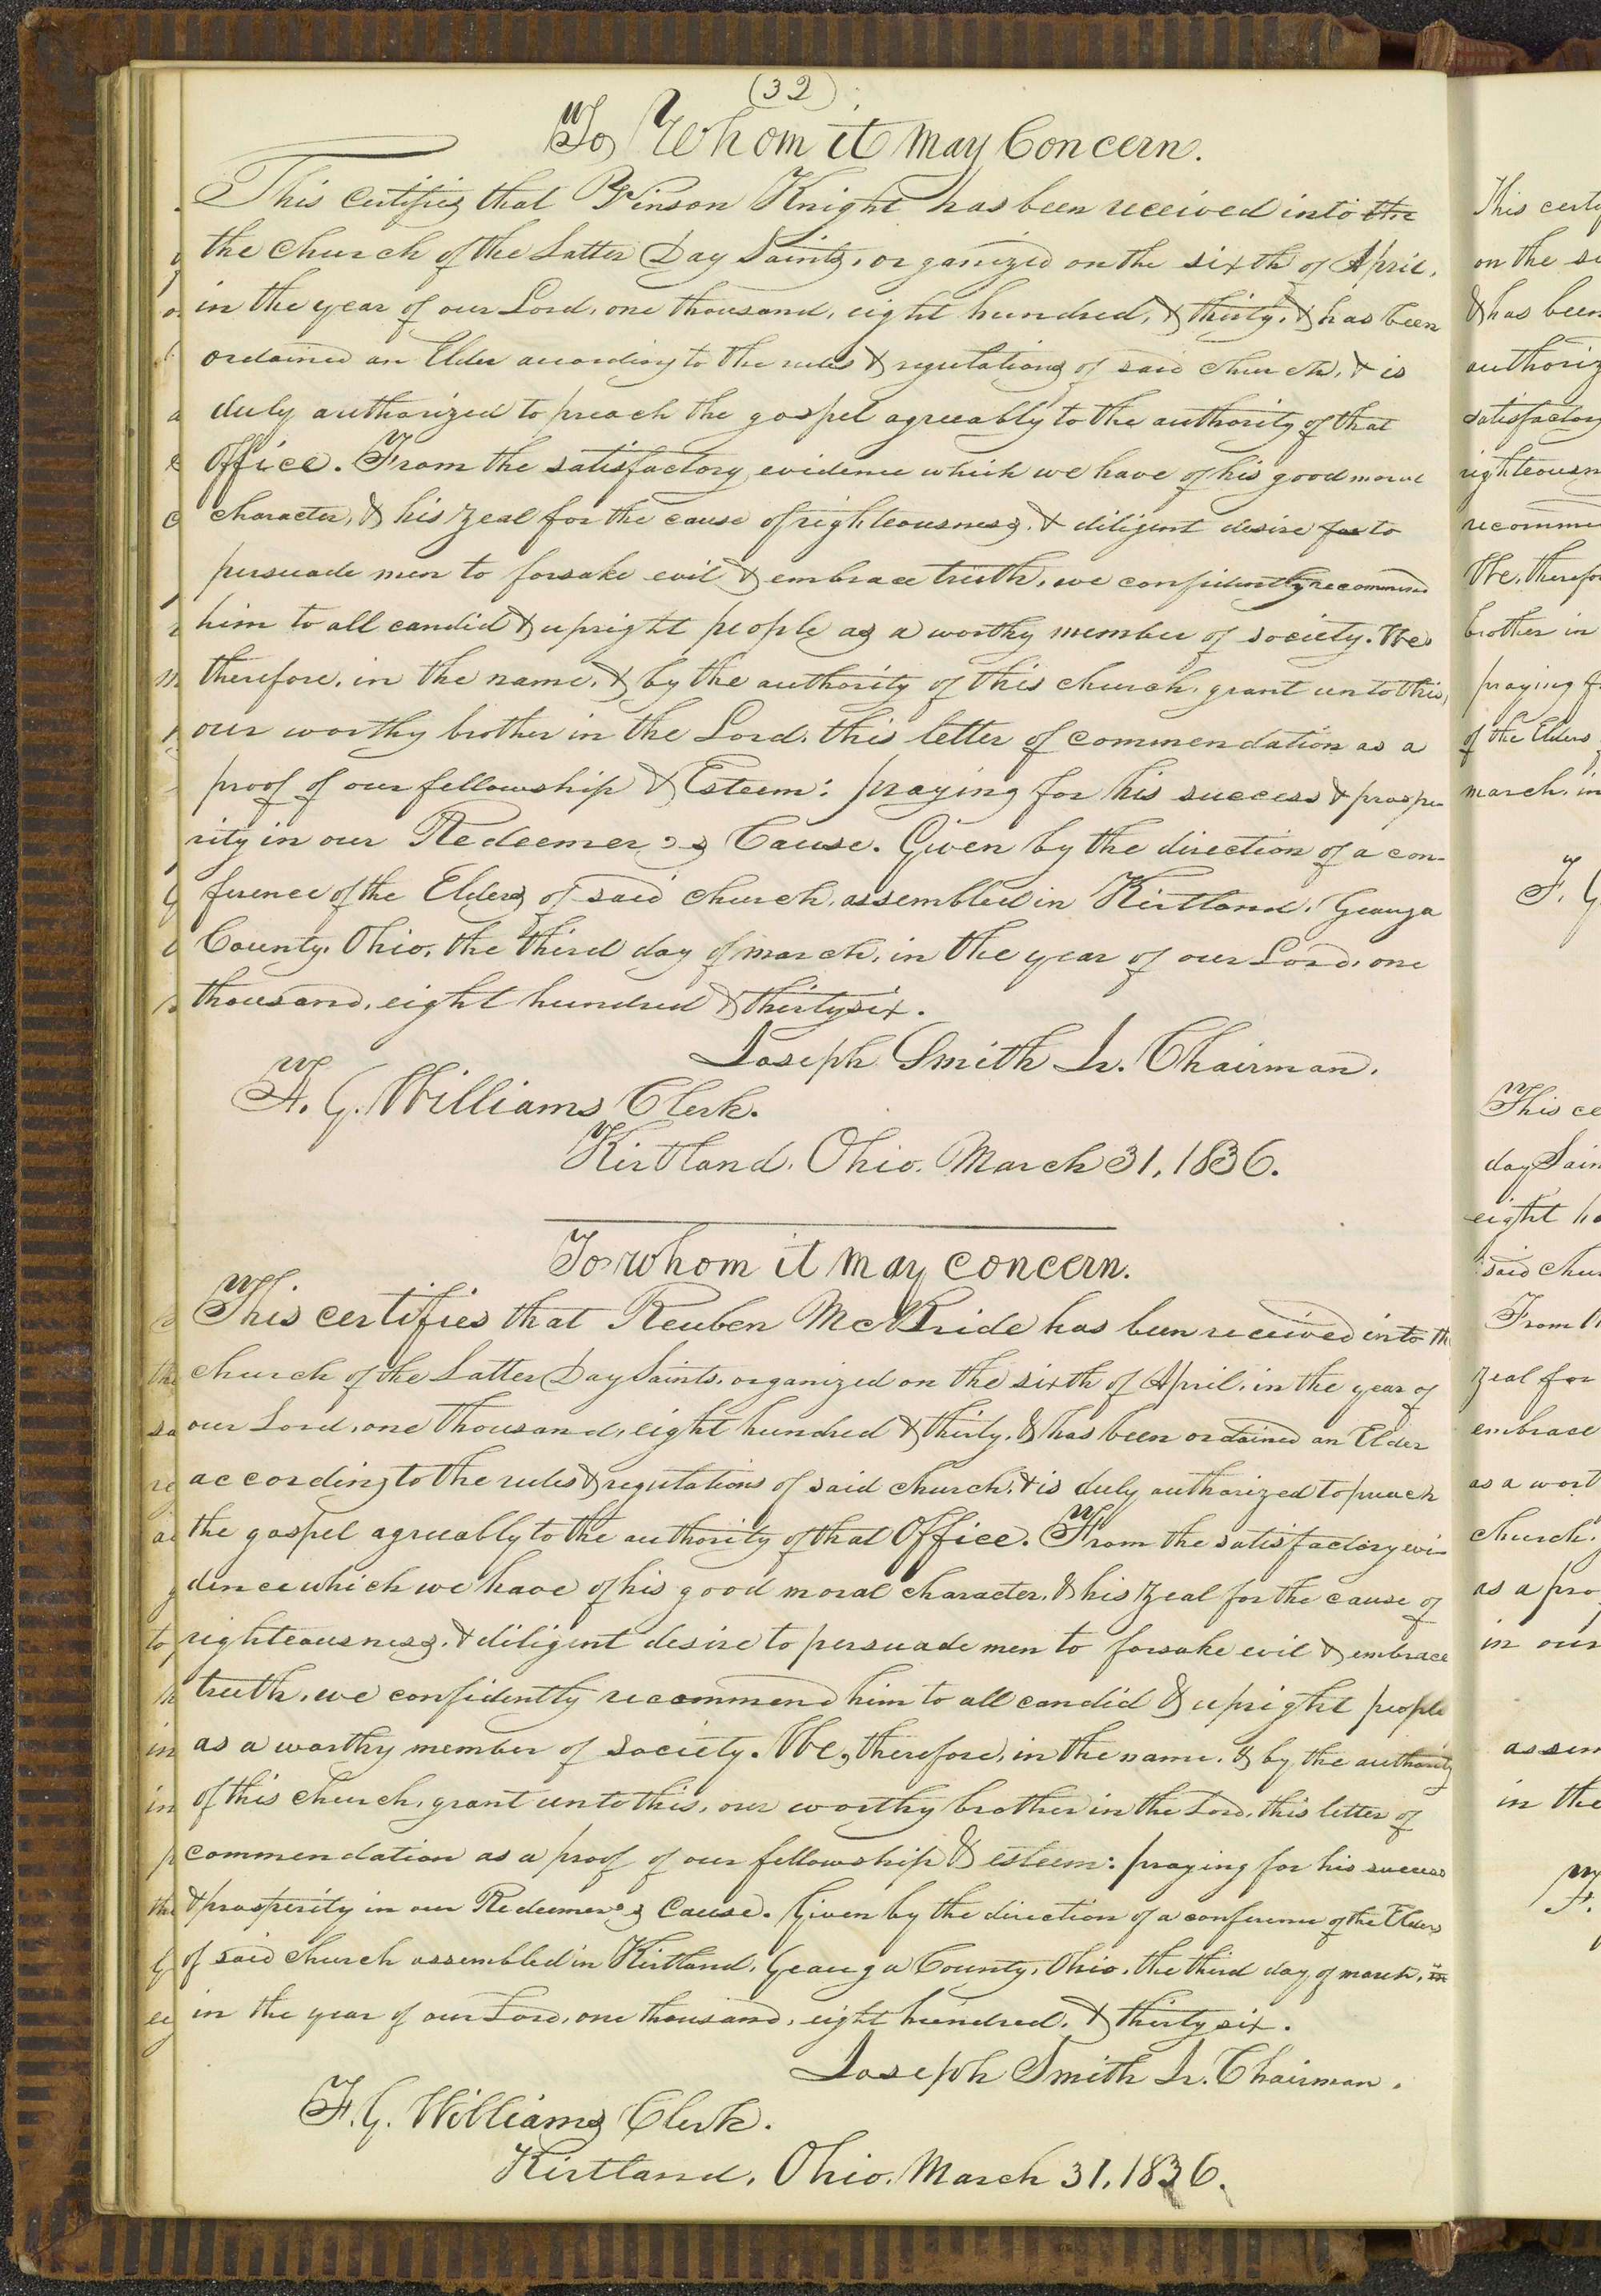 (32)
To Whom it may Concern.
This certifies that Vinson Knight has been received into the
the church of the Latter Day Saints, organized on the sixth of April,
in the year of our Lord, one thousand, eight hundred, & thirty, & has been
ordained an Elder according to the rules & regulations of said church, & is
duly authorized to preach the gospel agreeably to the authority of that
Office. From the satisfactory evidence which we have of his good moral
character, & his zeal for the cause of righteousness, & diligent desire for to
persuade men to forsake evil & embrace truth, we confidently recommend
him to all candid & upright people as a worthy member of society. We
therefore, in the name, & by the authority of this church, grant unto this,
our worthy brother in the Lord, this letter of commendation as a
proof of our fellowship & Esteem: praying for his success & prospe
rity in our Redeemer's Cause. Given by the direction of a con-
ference of the Elders of said church, assembled in Kirtland, Geauga
County, Ohio, the third day of march, in the year of our Lord, one
thousand, eight hundred & thirty six.
Joseph Smith Jr. Chairman.
F. G. Williams Clerk.
Kirtland, Ohio. March 31, 1836.
To whom it may concern.
This certifies that Reuben McBride has been received into the
church of the Latter Day Saints, organized on the sixth of April, in the year of
our Lord, one thousand, eight hundred & thirty, & has been ordained an Elder
according to the rules & regulations of said church, & is duly authorized to preach
the gospel agreeably to the authority of that Office. From the satisfactory evi-
dence which we have of his good moral character, & his zeal for the cause of
righteousness, & diligent desire to persuade men to forsake evil & embrace
truth, we confidently recommend him to all candid & upright people
as a worthy member of society. We, therefore, in the name, & by the authority
of this church, grant unto this, our worthy brother in the Lord, this letter of
commendation as a proof of our fellowship & esteem: praying for his success
& prosperity in our Redeemer's Cause. Given by the direction of a conference of the Elders
of said church assembled in Kirtland, Geauga County, Ohio, the third day of march, in
in the year of our Lord, one thousand, eight hundred, & thirty six.
Joseph Smith Jr. Chairman.
F. G. Williams Clerk.
Kirtland, Ohio. March 31, 1836.
This certi
on the si
& has been
authoriz
satisfactory
righteousn
recomme
We, therefo
brother in
praying f
of the Elders
march, in
F. G
This ce
day Sain
eight hu
said chu
From th
zeal for
embrace
as a wort
church,
as a pro
in our
assem
in the
F.